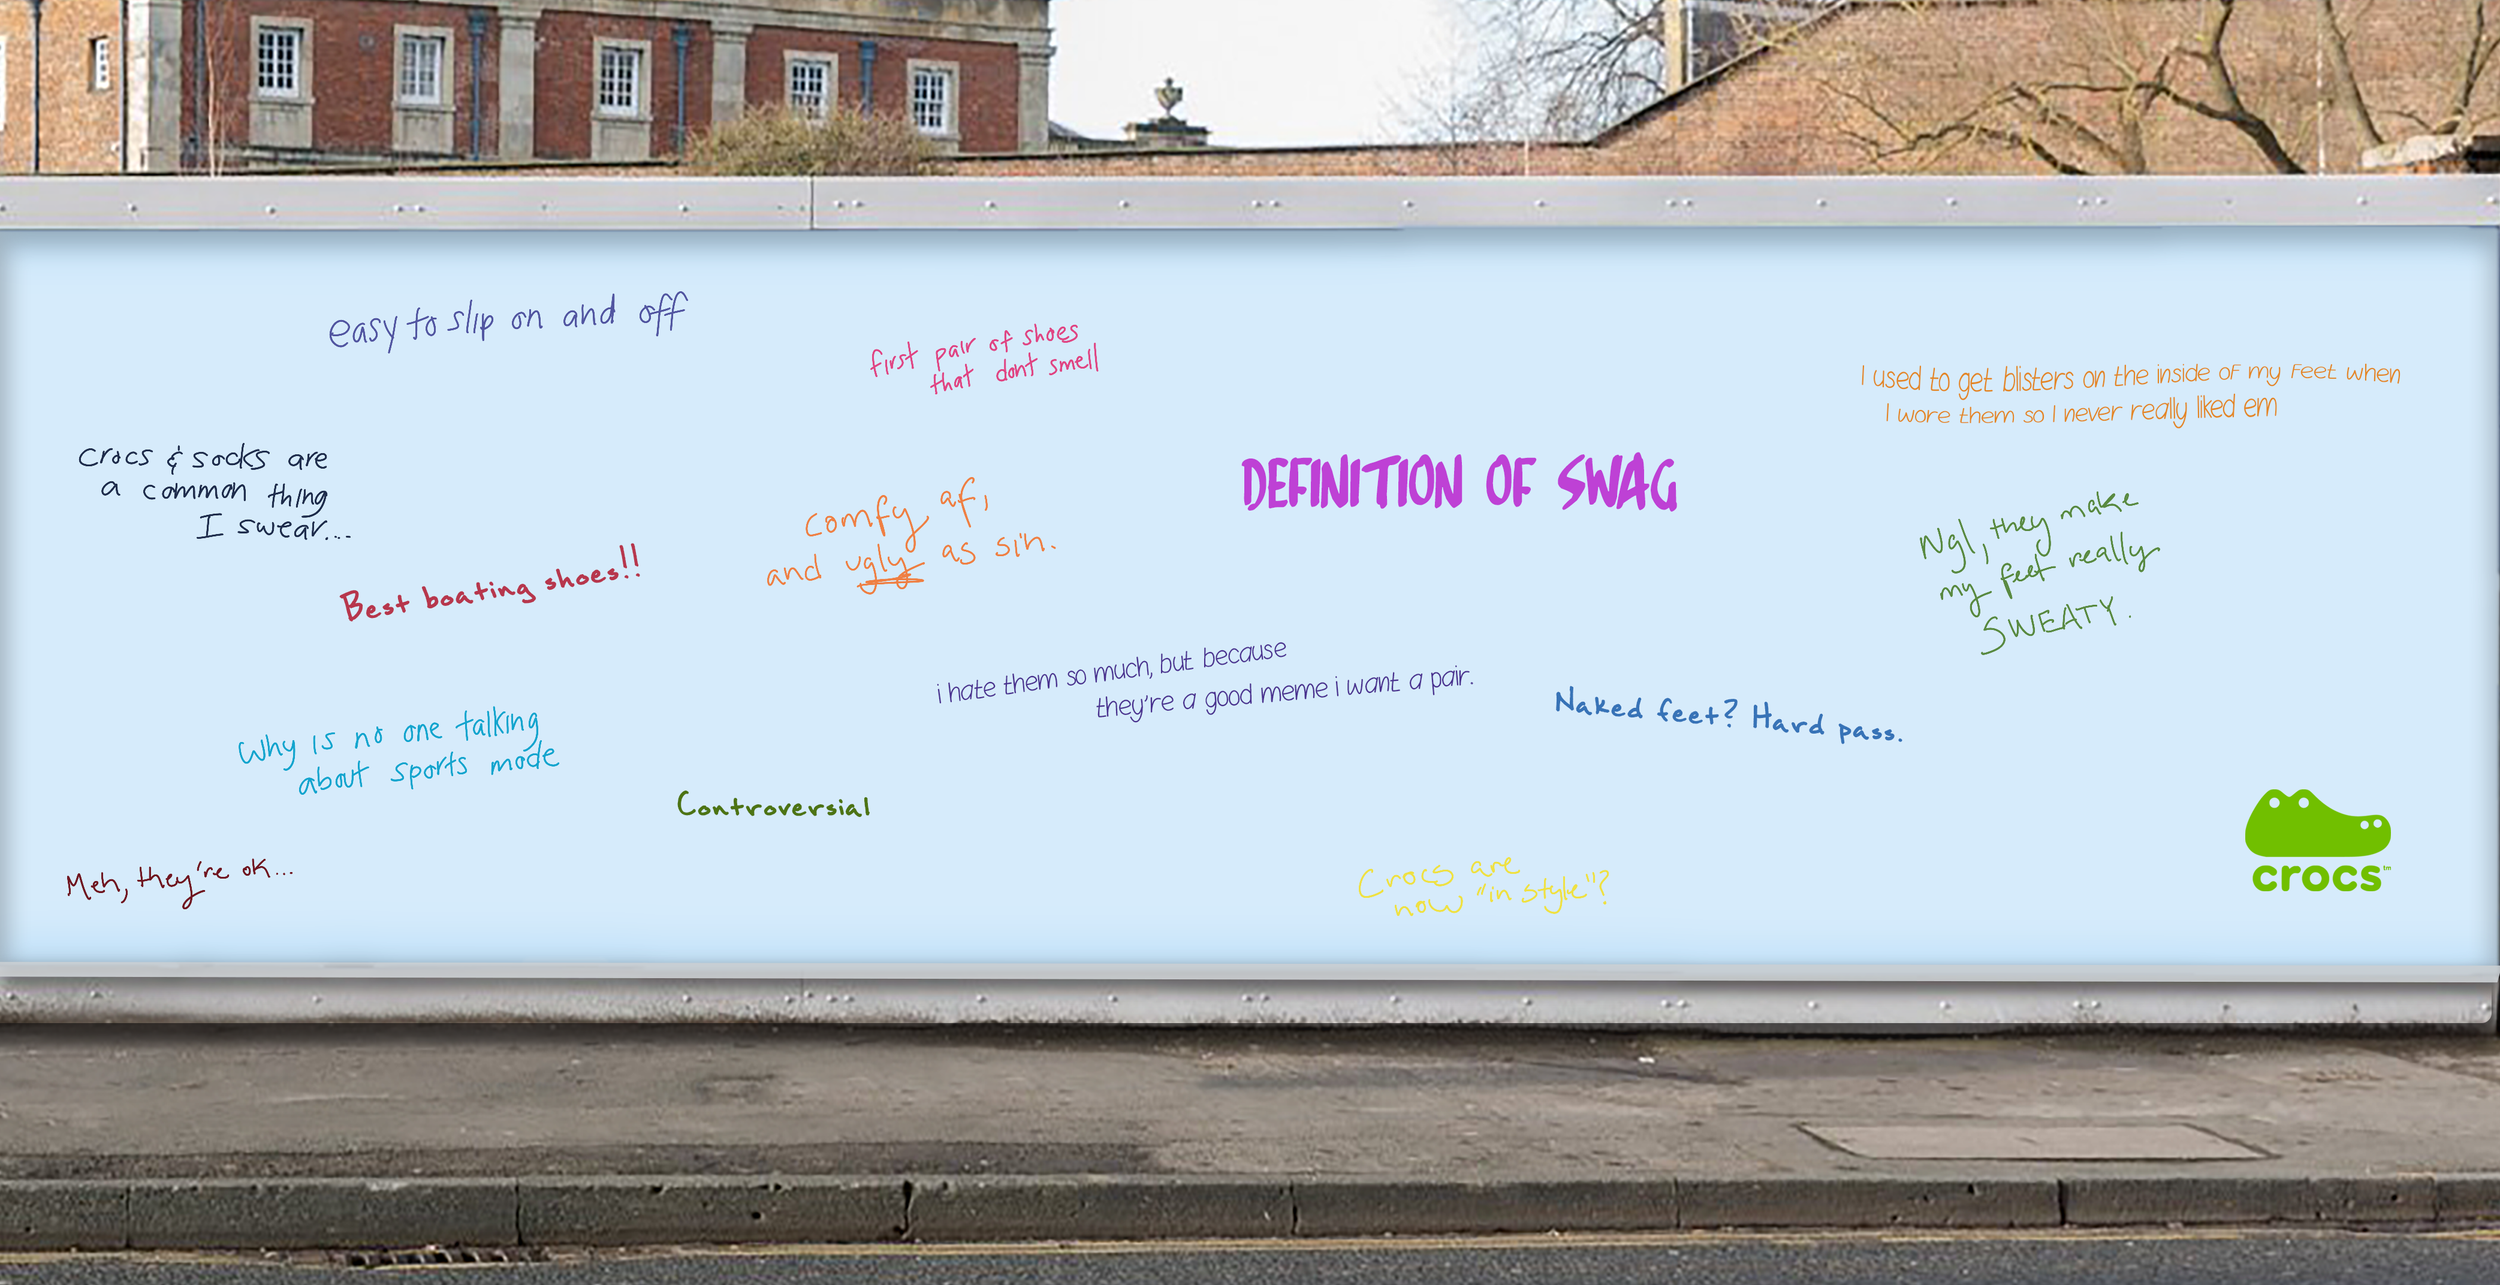 easy to slip on and off
first pair of shoes
that dont smell
I used to get blisters on the inside of my feet when
I wore them so I never really liked em
crocs & socks are
a common thing
I swear...
Best boating shoes!!
comfy af,
and ugly as sin.
DEFINITION OF SWAG
Ngl, they make
my feet really
SWEATY.
i hate them so much, but because
they're a good meme i want a pair.
Naked feet? Hard pass.
Why is no one talking
about sports mode
Controversial
Meh, they're ok...
Crocs are
now "in style"?
crocs™